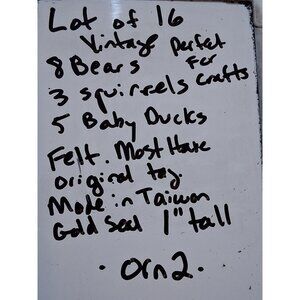 Lot of 16
Vintage Perfect
8 Bears For
3 squirrels Crafts
5 Baby Ducks
Felt. Most Have
original tag
Made in Taiwan
Gold Seal 1" tall
. orn2.